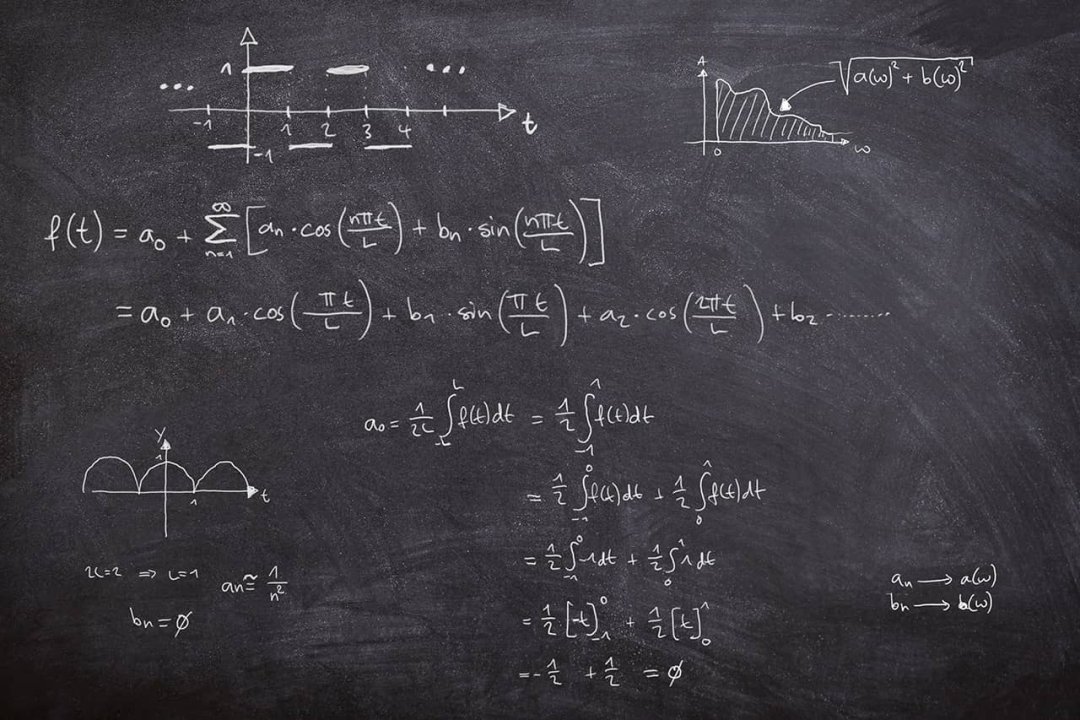 1
...
...
-1 1 2 3 4 t
-1
A
√a(ω)² + b(ω)²
0 ω
f(t) = a₀ + ∑ₙ₌₁^∞ [aₙ · cos(nπt/L) + bₙ · sin(nπt/L)]
= a₀ + a₁ · cos(πt/L) + b₁ · sin(πt/L) + a₂ · cos(2πt/L) + b₂ ........
a₀ = 1/2L ∫₋L^L f(t)dt = 1/2 ∫₋₁^1 f(t)dt
= 1/2 ∫₋₁^0 f(t)dt + 1/2 ∫₀^1 f(t)dt
= 1/2 ∫₋₁^0 -1dt + 1/2 ∫₀^1 1dt
= 1/2 [-t]₋₁^0 + 1/2 [t]₀^1
= -1/2 + 1/2 = ∅
y
1
t
1
2L=2 ⇒ L=1
aₙ ≅ 1/n²
bₙ = ∅
aₙ → a(ω)
bₙ → b(ω)